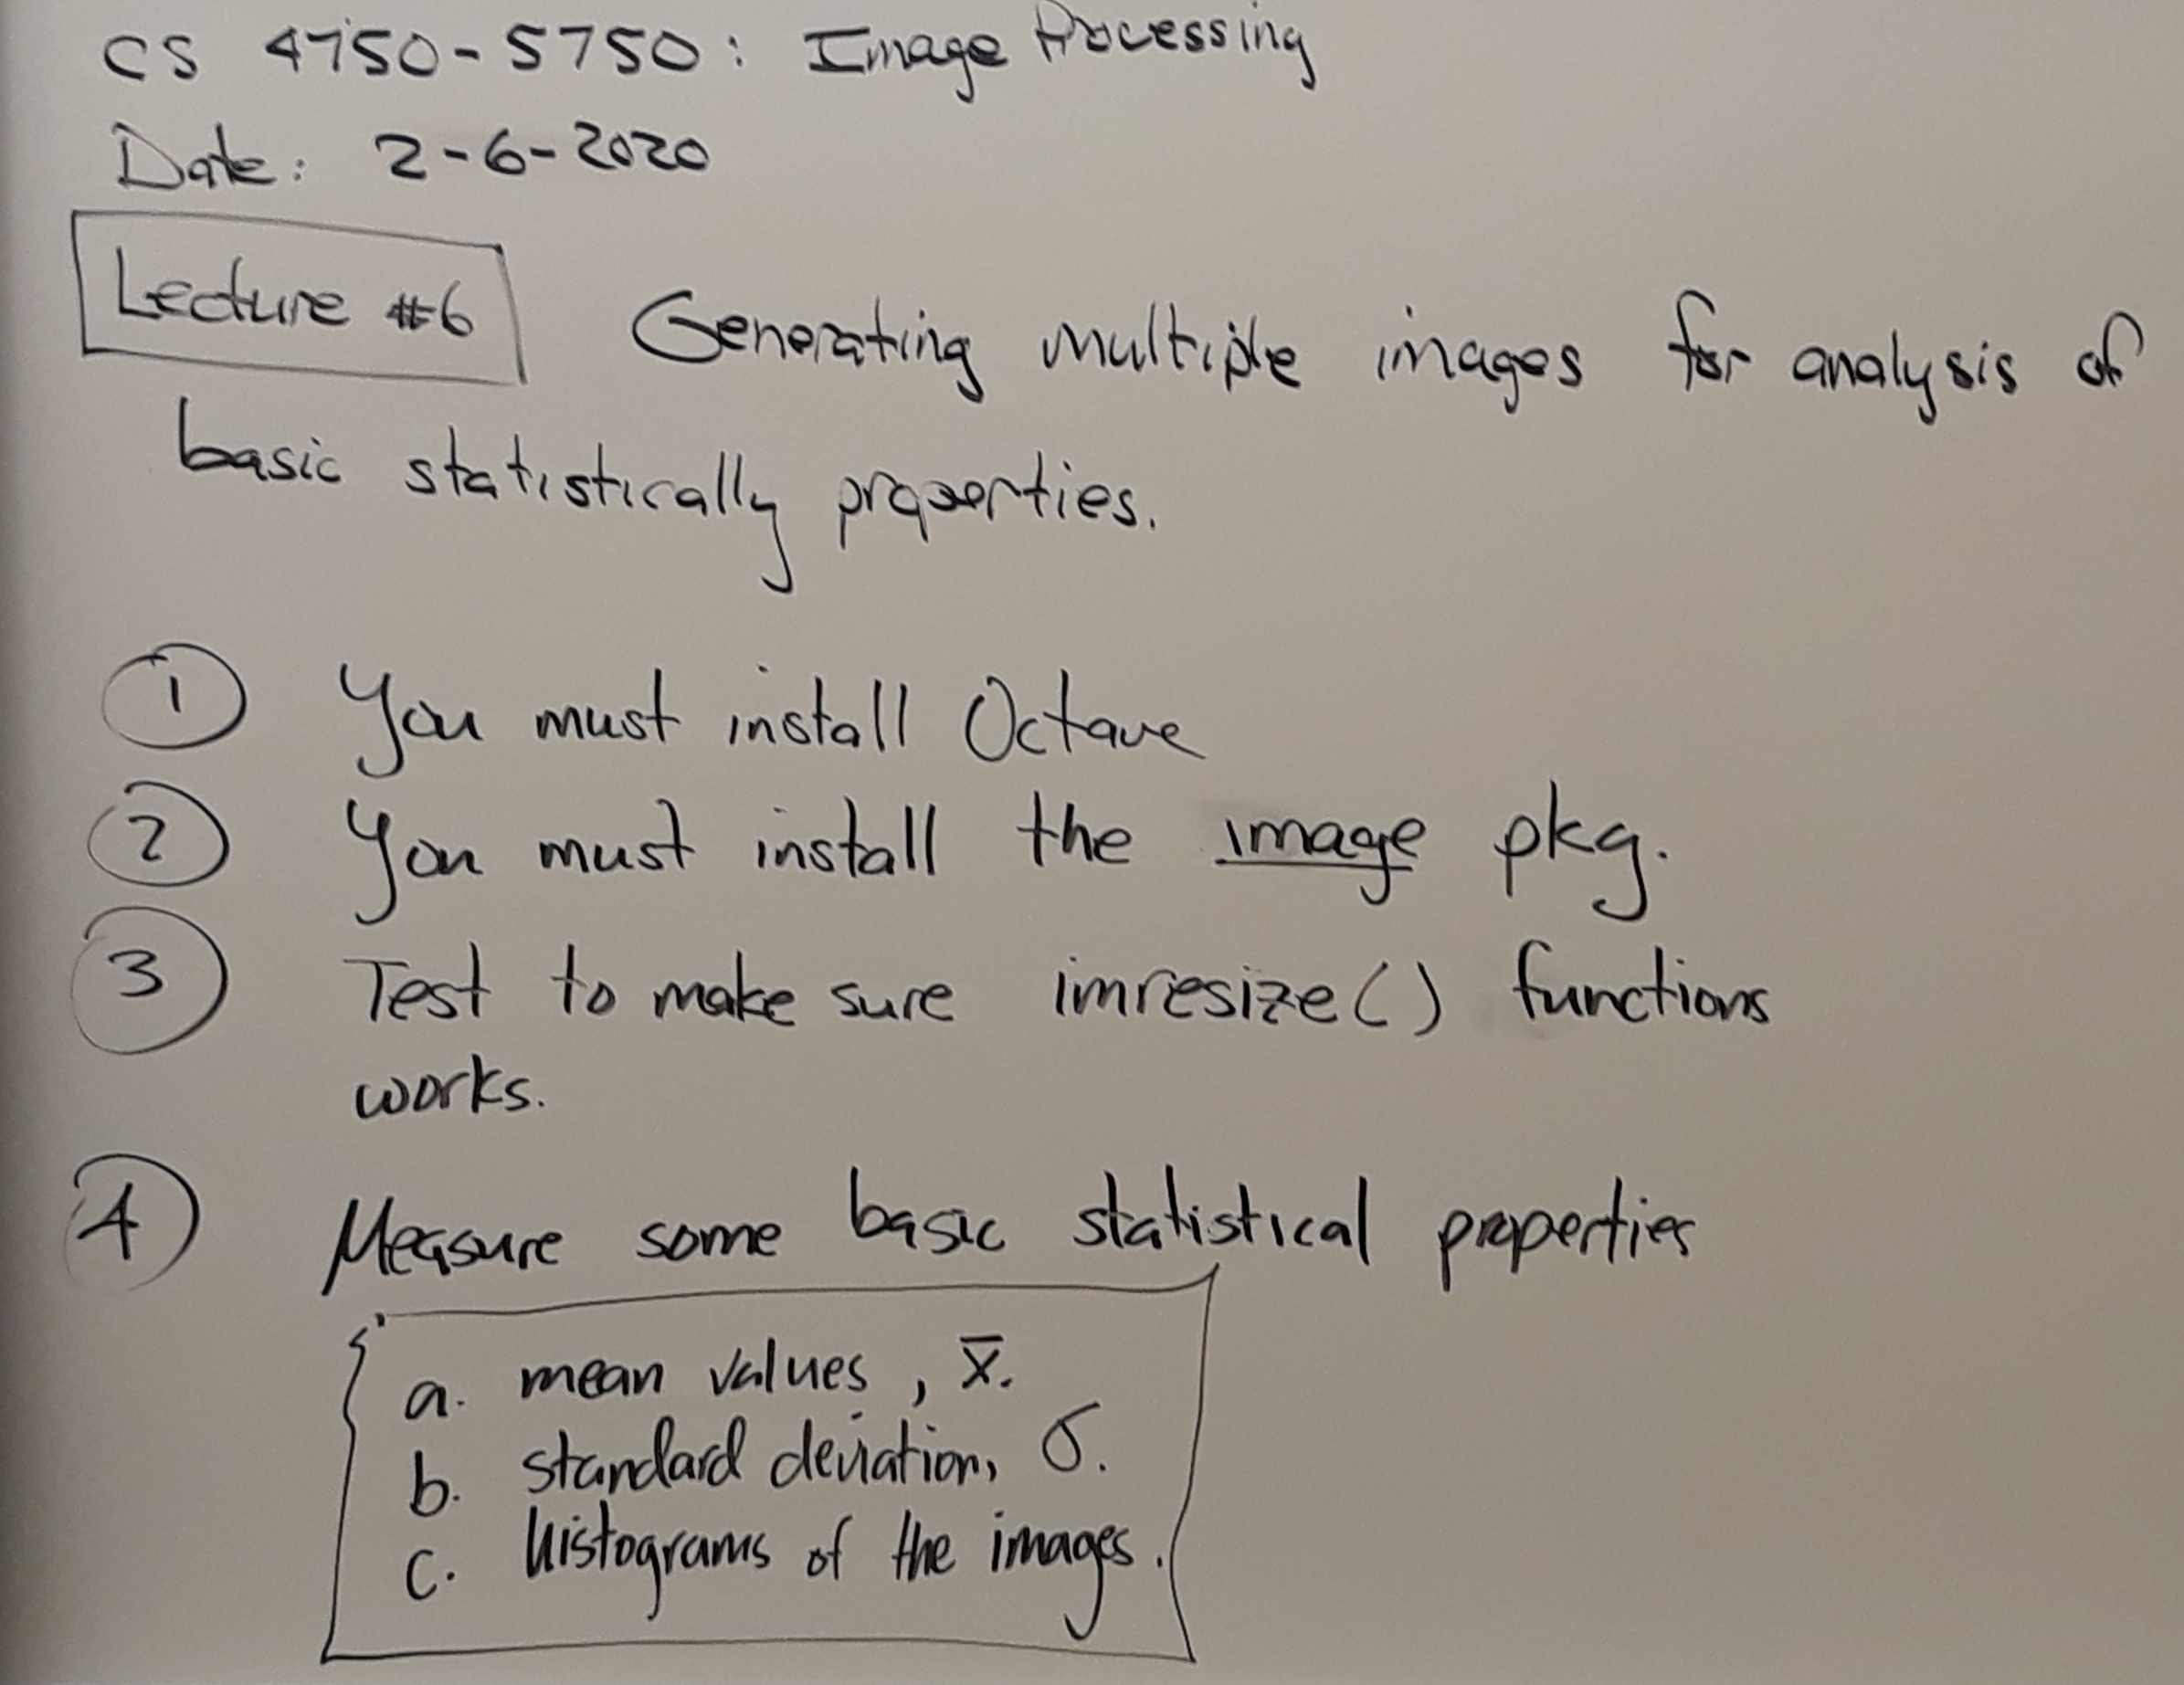 CS 4750-5750: Image Processing
Date: 2-6-2020
Lecture #6 Generating multiple images for analysis of
basic statistically properties.
1 You must install Octave
2 You must install the image pkg.
3 Test to make sure imresize() functions
works.
4 Measure some basic statistical properties
a. mean values, x̄.
b. standard deviation, σ.
c. histograms of the images.